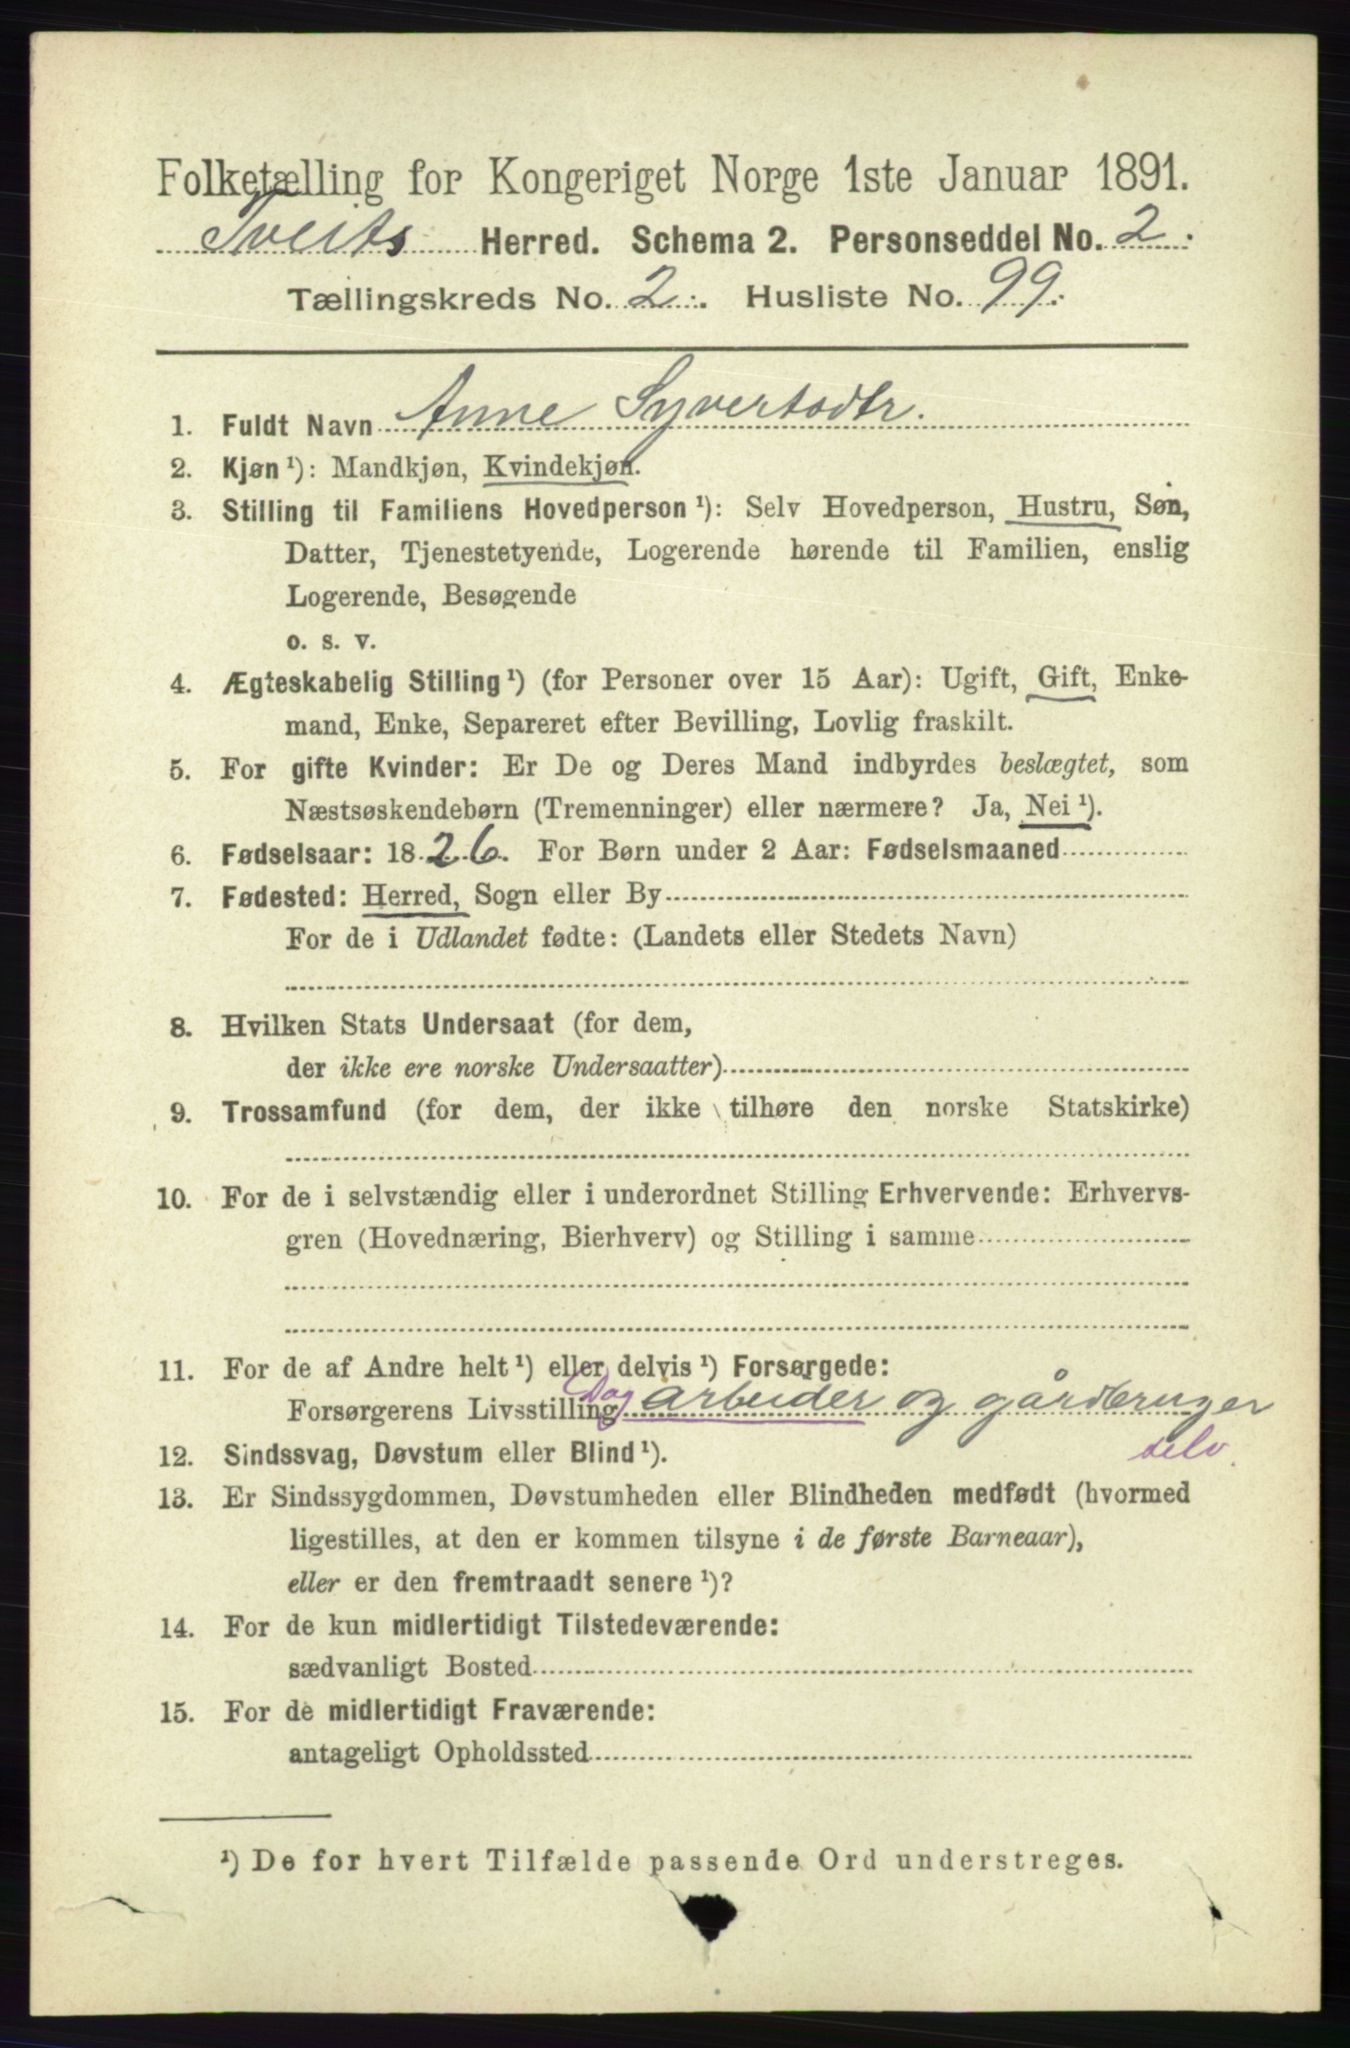 Folketælling for Kongeriget Norge 1ste Januar 1891.
Tveits Herred. Schema 2. Personseddel No. 2.
Tællingskreds No. 2. Husliste No. 99.
1. Fuldt Navn Anne Syvertsdtr.
2. Kjøn ¹): Mandkjøn, Kvindekjøn.
3. Stilling til Familiens Hovedperson ¹): Selv Hovedperson, Hustru, Søn,
Datter, Tjenestetyende, Logerende hørende til Familien, enslig
Logerende, Besøgende
o. s. v.
4. Ægteskabelig Stilling ¹) (for Personer over 15 Aar): Ugift, Gift, Enke-
mand, Enke, Separeret efter Bevilling, Lovlig fraskilt.
5. For gifte Kvinder: Er De og Deres Mand indbyrdes beslægtet, som
Næstsøskendebørn (Tremenninger) eller nærmere? Ja, Nei ¹).
6. Fødselsaar: 1826. For Børn under 2 Aar: Fødselsmaaned
7. Fødested: Herred, Sogn eller By
For de i Udlandet fødte: (Landets eller Stedets Navn)
8. Hvilken Stats Undersaat (for dem,
der ikke ere norske Undersaatter)
9. Trossamfund (for dem, der ikke tilhøre den norske Statskirke)
10. For de i selvstændig eller i underordnet Stilling Erhvervende: Erhvervs-
gren (Hovednæring, Bierhverv) og Stilling i samme
11. For de af Andre helt ¹) eller delvis ¹) Forsørgede:
Forsørgerens Livsstilling Dagarbeider og gårdbruger
selv.
12. Sindssvag, Døvstum eller Blind ¹).
13. Er Sindssygdommen, Døvstumheden eller Blindheden medfødt (hvormed
ligestilles, at den er kommen tilsyne i de første Barneaar),
eller er den fremtraadt senere ¹)?
14. For de kun midlertidigt Tilstedeværende:
sædvanligt Bosted
15. For de midlertidigt Fraværende:
antageligt Opholdssted
¹) De for hvert Tilfælde passende Ord understreges.